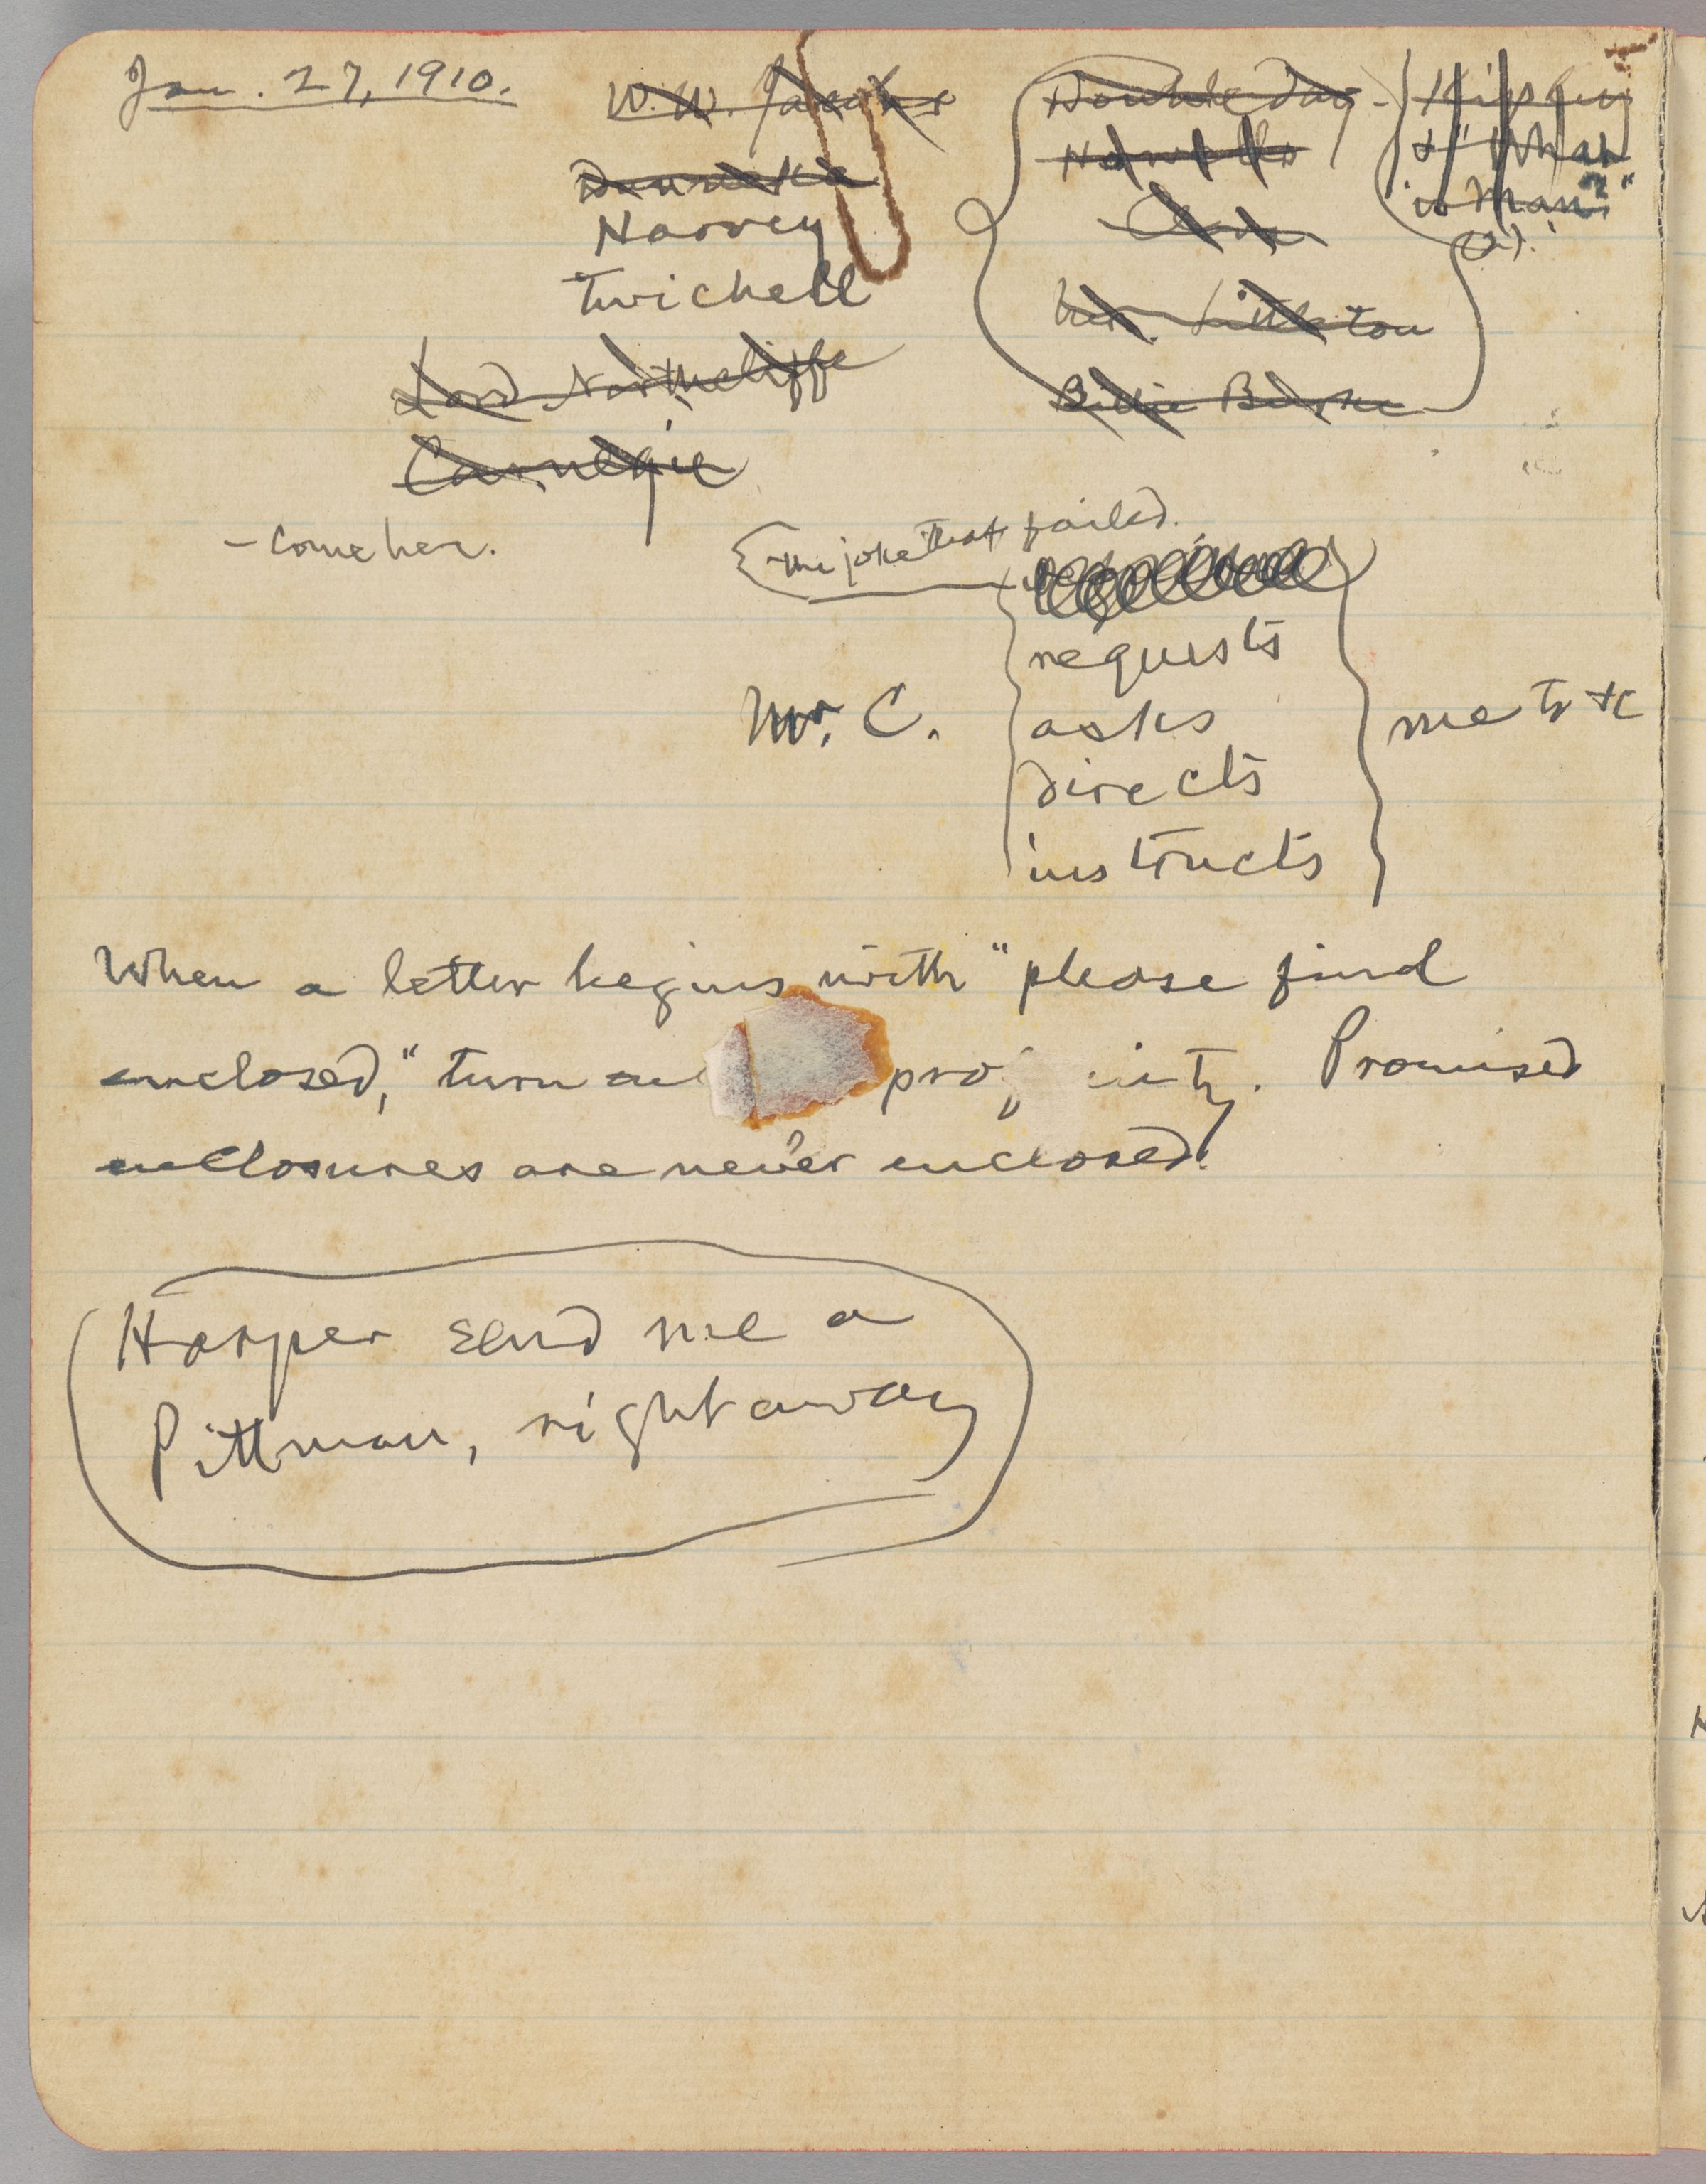 Jan. 27, 1910.
W. W. Jacobs
Duneka
Harvey
Twichell
Lord Northcliffe
Carnegie
Doubleday -
Howells
Clara
Mrs. Littleton
Billie Burke
Kipling
& "What
is Man?"
- Come her.
The joke that failed.
Mr. C.
requests
asks
directs
instructs
me to &c
When a letter begins with "please find
enclosed," turn on pro ity. Promised
enclosures are never enclosed.
Harper send me a
Pittman, right away